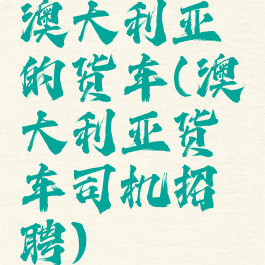 澳大利亚
的货车(澳
大利亚货
车司机招
聘)